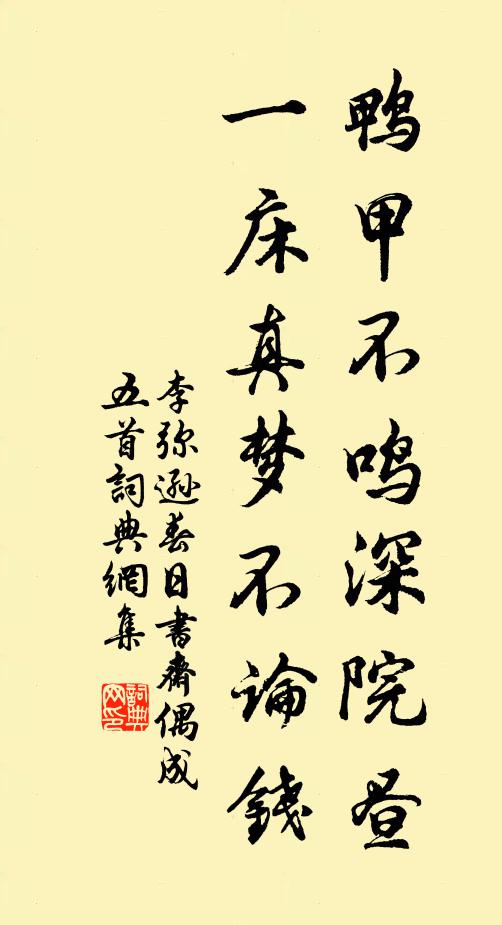 鸭甲不鸣深院昼
一床真梦不论钱
李弥逊春日书斋偶成
五首词典网集
词典网印